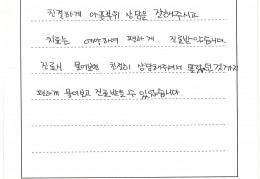 친절하게 아픈부위 상담을 잘해주시고
치료는 예약하여 편하게 진료받았습니다.
진료시 물어보면 친절히 상담해주어서 것까지
편하게 물어보고 진료받을 수 있었습니다.